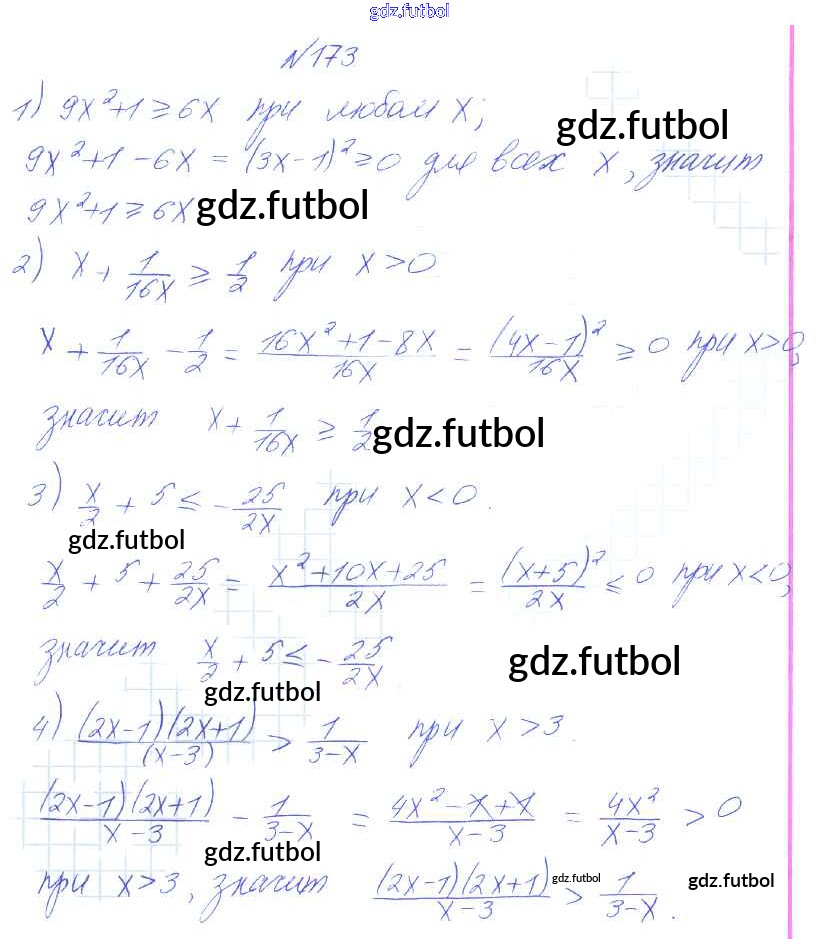 gdz.futbol
№173
1) 9x²+1 ≥ 6x при любом x;
gdz.futbol
9x²+1-6x = (3x-1)² ≥ 0 для всех x, значит
9x²+1 ≥ 6x gdz.futbol
2) x + 1/16x ≥ 1/2 при x > 0
x + 1/16x - 1/2 = 16x²+1-8x/16x = (4x-1)²/16x ≥ 0 при x>0,
значит x + 1/16x ≥ 1/2 gdz.futbol
3) x/2 + 5 ≤ - 25/2x при x < 0.
gdz.futbol
x/2 + 5 + 25/2x = x²+10x+25/2x = (x+5)²/2x ≤ 0 при x<0,
значит x/2 + 5 ≤ - 25/2x gdz.futbol
gdz.futbol
4) (2x-1)(2x+1)/(x-3) > 1/3-x при x > 3.
(2x-1)(2x+1)/x-3 - 1/3-x = 4x²-1+1/x-3 = 4x²/x-3 > 0
gdz.futbol
при x>3, значит (2x-1)(2x+1)/x-3 gdz.futbol > 1/3-x. gdz.futbol